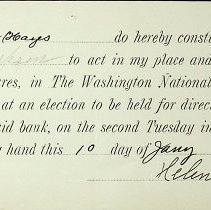 Hayes do hereby consti
to act in my place and
res, in The Washington National
at an election to be held for direc
id bank, on the second Tuesday in
hand this 10 day of Jany
Helen